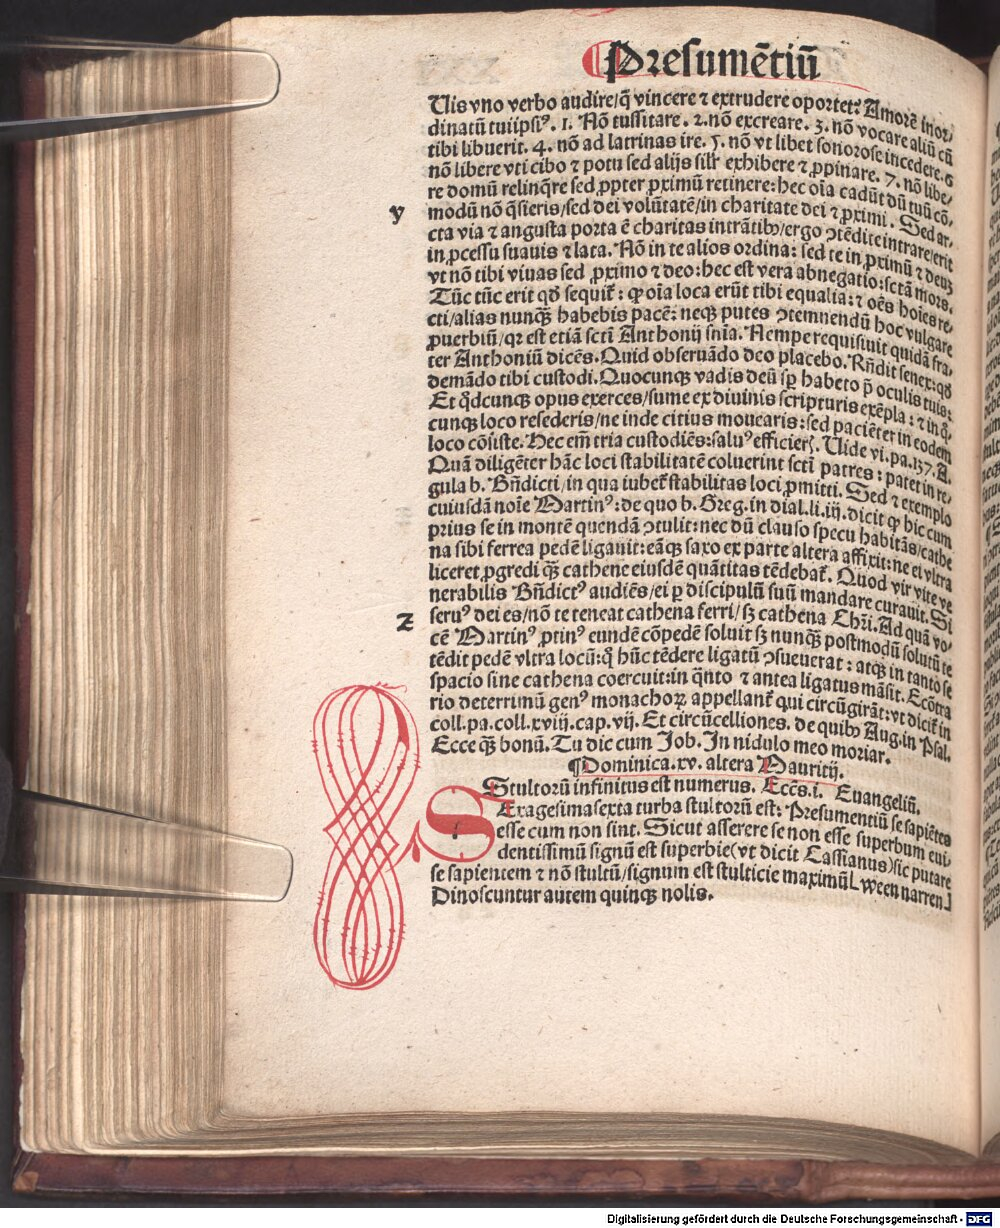 Presumētiū
Uis vno verbo audire/q̄ vincere ⁊ extrudere oportet? Amorē inor⸗
dinatū tuiipsiꝰ. 1. Nō tussitare. 2. nō excreare. 3. nō vocare aliū cū
tibi libuerit. 4. nō ad latrinas ire. 5. nō vt libet sonorose incedere. 6
nō libere vti cibo ⁊ potu sed alijs silr̄ exhibere ⁊ ꝓpinare. 7. nō libe⸗
re domū relinq̄re sed ꝓpter ꝓximū retinere: hec oīa cadūt dū tuū cō⸗
y
modū nō q̄sieris/sed dei volūtatē/in charitate dei ⁊ ꝓximi. Sed ar⸗
cta via ⁊ angusta porta ē charitas intrātibꝰ/ergo ꝯtēdite intrare/erit
in ꝓcessu suauis ⁊ lata. Nō in te alios ordina: sed te in ꝓximū ⁊ deuꝫ
vt nō tibi viuas sed ꝓximo ⁊ deo: hec est vera abnegatio: sctā mors.
Tūc tūc erit qd̄ sequit̄: ꝙ oīa loca erūt tibi equalia: ⁊ oēs hoies re⸗
cti/alias nunqꝫ habebis pacē: neqꝫ putes ꝯtemnendū hoc vulgare
ꝓuerbiū/qr est etiā scti Anthonij snīa. Nempe requisiuit quidā fra⸗
ter Anthoniū dicēs. Quid obseruādo deo placebo. Rn̄dit senex: qd̄
demādo tibi custodi. Quocunqꝫ vadis deū sp̄ habeto p̄ oculis tuis:
Et qd̄cunqꝫ opus exerces/sume ex diuinis scripturis exēpla: ⁊ in q̄⸗
cunqꝫ loco resederis/ne inde citius mouearis: sed paciēter in eodem
loco cōsiste. Hec em̄ tria custodiēs: saluꝰ efficierꝭ. Uide vi. pa. 137. A.
Quā diligēter hāc loci stabilitatē coluerint scti patres: patet in re⸗
gula b. Bn̄dicti/in qua iubet̄ stabilitas loci ꝓmitti. Sed ⁊ exemplo
cuiusdā noīe Martinꝰ: de quo b. Greg. in dial. li. iij. dicit ꝙ hic cum
prius se in montē quendā ꝯtulit: nec dū clauso specu habitās/cathe
na sibi ferrea pedē ligauit: eāqꝫ saxo ex parte altera affixit: ne ei vltra
liceret ꝓgredi qꝫ cathene eiusdē quātitas tēdebat̄. Quod vir vite ve
nerabilis Bn̄dictꝰ audiēs/ei ꝑ discipulū suū mandare curauit. Si
seruꝰ dei es/nō te teneat cathena ferri/sꝫ cathena Chr̄i. Ad quā vo⸗
z
cē Martinꝰ ꝓtinꝰ eundē cōpedē soluit sꝫ nunqꝫ postmodū solutū te
tēdit pedē vltra locū: q̊ hūc tēdere ligatū ꝯsueuerat: atqꝫ in tanto se
spacio sine cathena coercuit: in q̄nto ⁊ antea ligatus māsit. Ecōtra
rio deterrimū genꝰ monachoꝝ appellant̄ qui circūgirāt: vt dicit̄ in
coll. pa. coll. xviij. cap. vij. Et circūcelliones. de quibꝰ Aug. in Psal.
Ecce qꝫ bonū. Tu dic cum Job. In nidulo meo moriar.
¶Dominica. xv. altera Mauritij.
Stultorū infinitus est numerus. Eccēs. i. Euangeliū.
SExagesimasexta turba stultorū est: Presumentiū se sapiētes
esse cum non sint. Sicut asserere se non esse superbum eui⸗
dentissimū signū est superbie(vt dicit Cassianus)sic putare
se sapientem ⁊ nō stultū/signum est stulticie maximū[ ween narren]
Dinoscuntur autem quinqꝫ nolis.
Digitalisierung gefördert durch die Deutsche Forschungsgemeinschaft - DFG